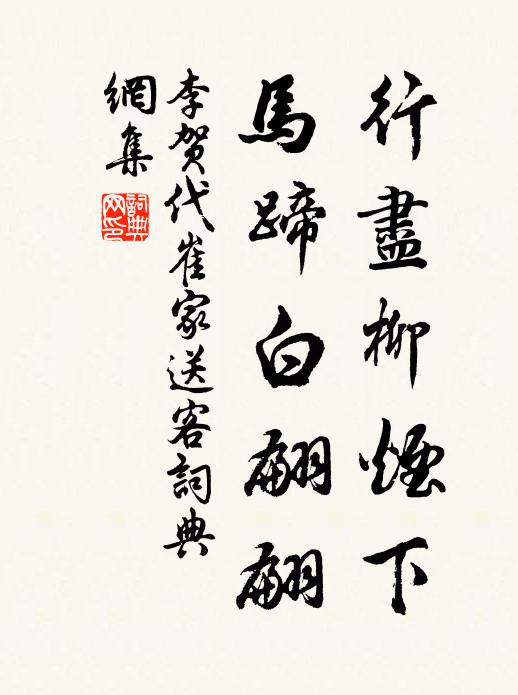 行盡柳煙下
馬蹄白翩翩
李賀代崔家送客詞典
網集
詞典
网印